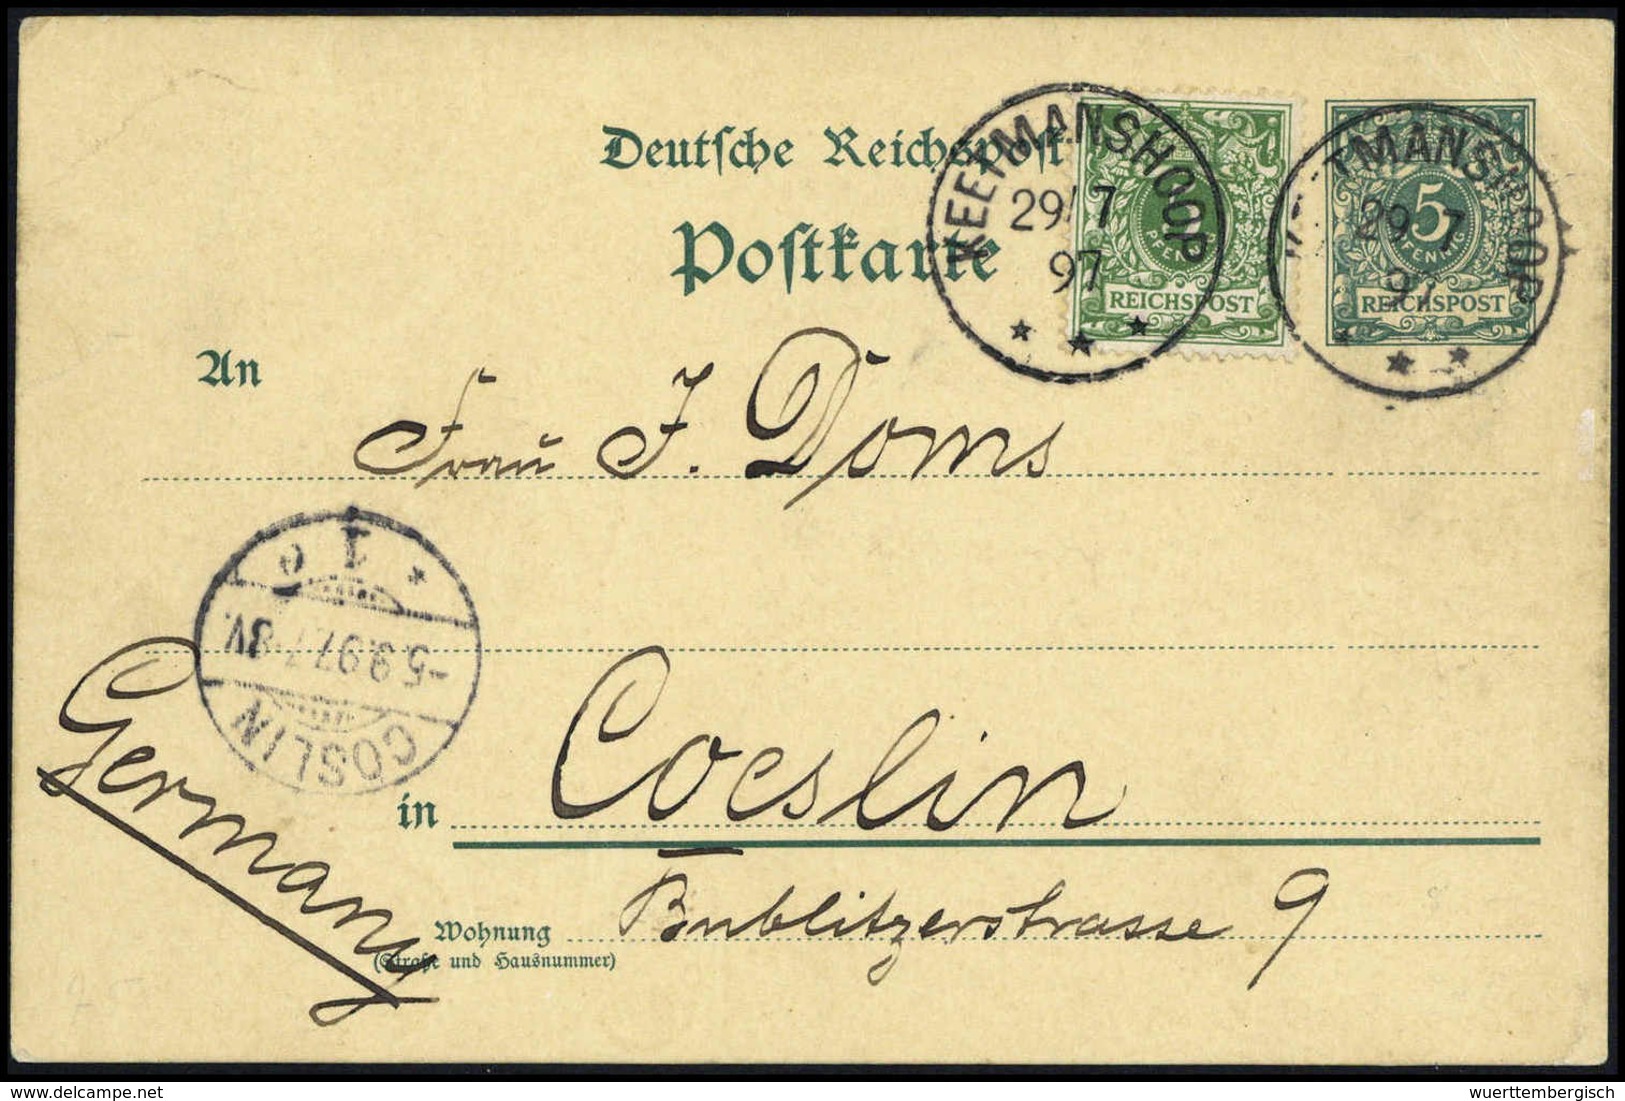 Deutsche Reichspost
Postkarte
KEETMANSHOOP
29/7
97
5
PFENNIG
REICHSPOST
29 7
97
5
PFENNIG
REICHSPOST
An
Frau J. Doms
1 e
-5.9.97.7-8V.
CÖSLIN
Germany
in Coeslin
Wohnung
(Straße und Hausnummer)
Bublitzerstrasse 9
delcampe.net
wuerttembergisch